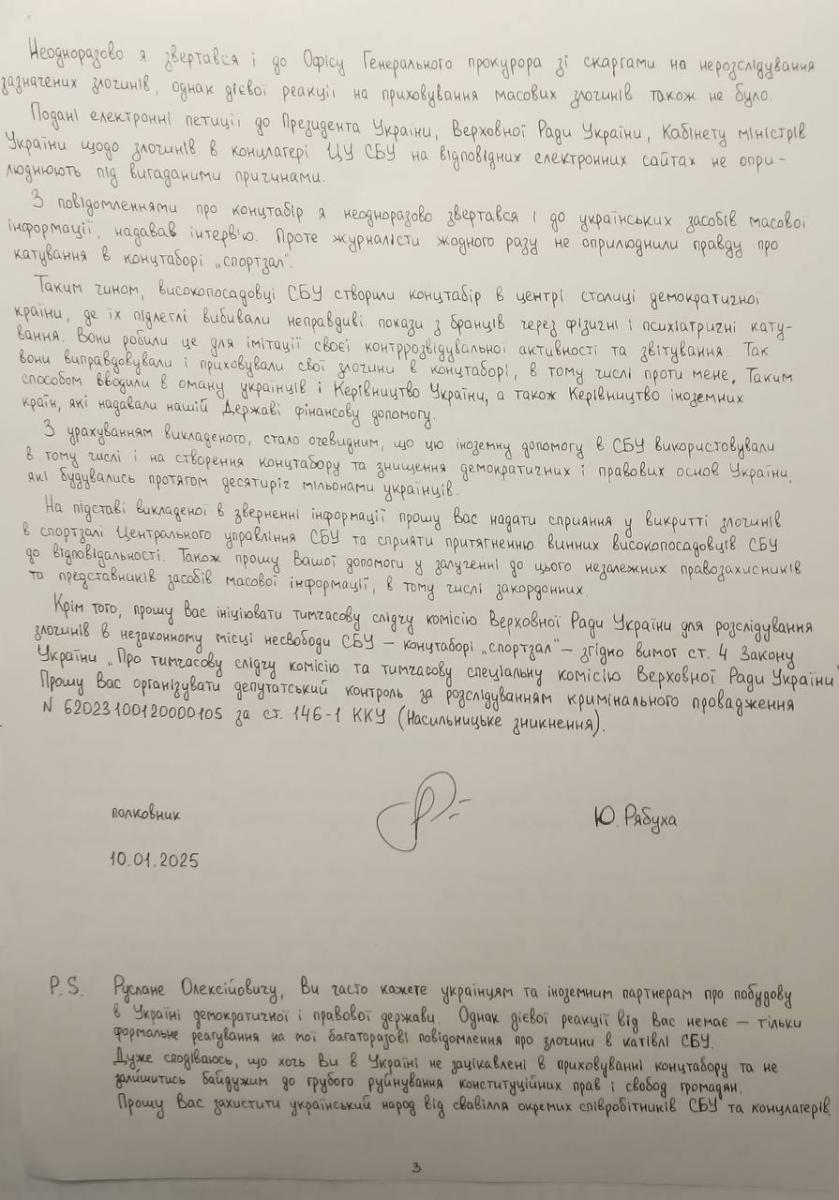 Неодноразово я звертався і до Офісу Генерального прокурора зі скаргами на нерозслідування
зазначених злочинів, однак дієвої реакції на приховування масових злочинів також не було.
Подані електронні петиції до Президента України, Верховної Ради України, Кабінету міністрів
України щодо злочинів в концлагері ЦУ СБУ на відповідних електронних сайтах не опри-
люднюють під вигаданими причинами.
З повідомленнями про концтабір я неодноразово звертався і до українських засобів масової
інформації, надавав інтерв'ю. Проте журналісти жодного разу не оприлюднили правду про
катування в концтаборі „спортзал".
Таким чином, високопосадовці СБУ створили концтабір в центрі столиці демократичної
країни, де їх підлеглі вибивали неправдиві покази з бранців через фізичні і психіатричні кату-
вання. Вони робили це для імітації своєї контррозвідувальної активності та звітування. Так
вони виправдовували і приховували свої злочини в концтаборі, в тому числі проти мене. Таким
способом вводили в оману українців і Керівництво України, а також Керівництво іноземних
країн, які надавали нашій Державі фінансову допомогу.
З урахуванням викладеного, стало очевидним, що цю іноземну допомогу в СБУ використовували
в тому числі і на створення концтабору та знищення демократичних і правових основ України,
які будувались протягом десятиріч мільонами українців.
На підставі викладеної в зверненні інформації прошу Вас надати сприяння у викритті злочинів
в спортзалі Центрального управління СБУ та сприяти притягненню винних високопосадовців СБУ
до відповідальності. Також прошу Вашої допомоги у залученні до цього незалежних правозахисників
та представників засобів масової інформації, в тому числі закордонних.
Крім того, прошу Вас ініціювати тимчасову слідчу комісію Верховної Ради України для розслідування
злочинів в незаконному місці несвободи СБУ – концтаборі „спортзал" – згідно вимог ст. 4 Закону
України „Про тимчасову слідчу комісію та тимчасову спеціальну комісію Верховної Ради України"
Прошу Вас організувати депутатський контроль за розслідуванням кримінального провадження
N 62023100120000105 за ст. 146-1 ККУ (Насильницьке зникнення).
полковник Ю. Рябуха
10.01.2025
P.S. Руслане Олексійовичу, Ви часто кажете українцям та іноземним партнерам про побудову
в Україні демократичної і правової держави. Однак дієвої реакції від Вас немає – тільки
формальне реагування на мої багаторазові повідомлення про злочини в катівлі СБУ.
Дуже сподіваюсь, що хоч Ви в Україні не зацікавлені в приховуванні концтабору та не
залишитись байдужим до грубого руйнування конституційних прав і свобод громадян.
Прошу Вас захистити український народ від свавілля окремих співробітників СБУ та концлагерів.
3